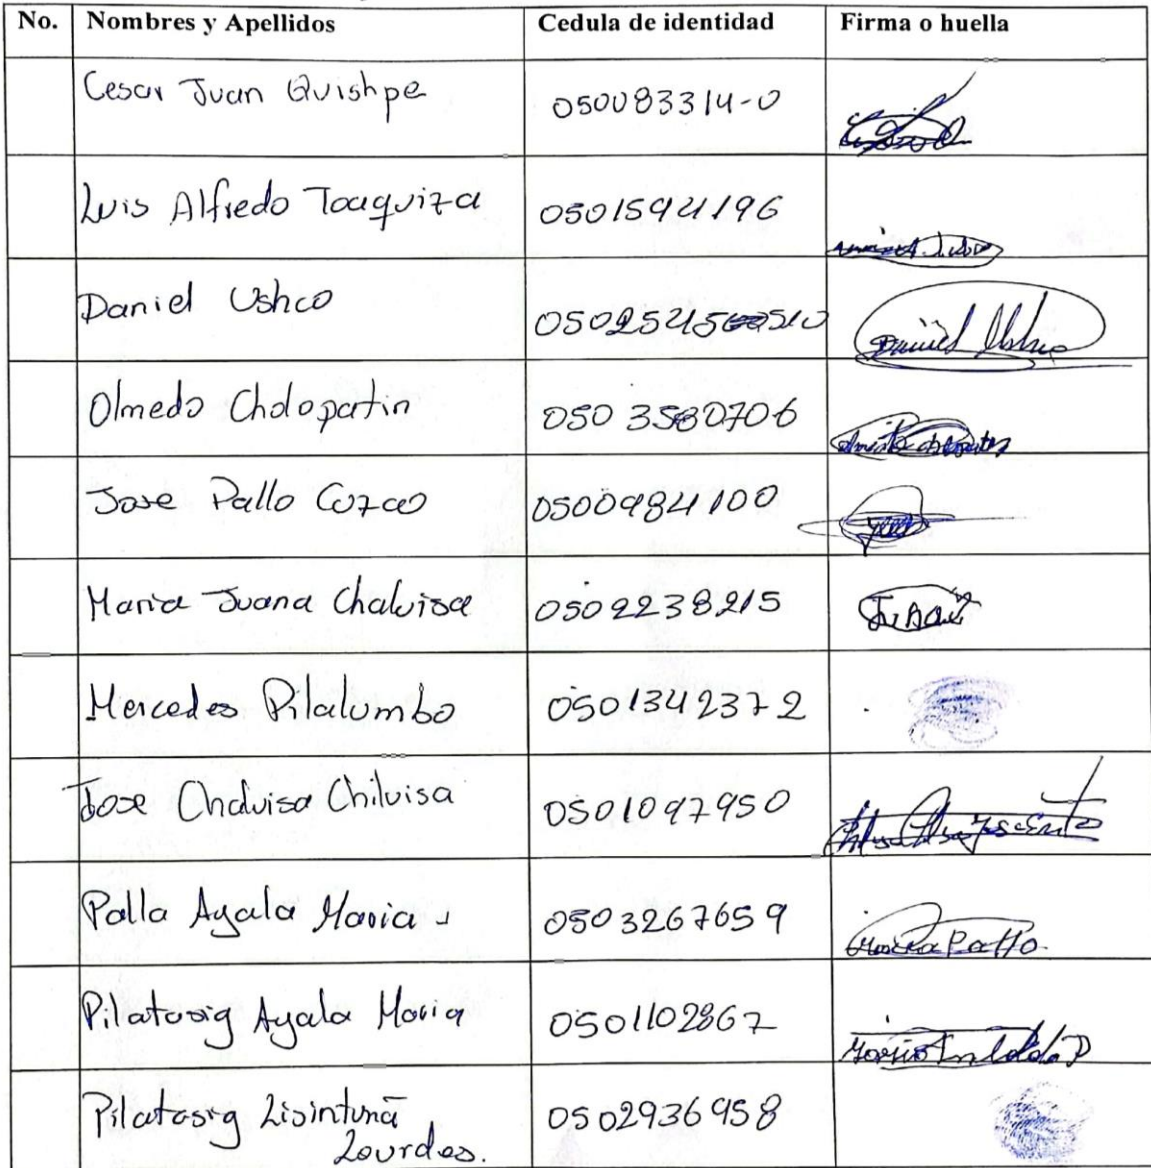 No. Nombres y Apellidos Cedula de identidad Firma o huella
Cesar Juan Quishpe 050083314-0
Luis Alfredo Toaquiza 0501594196
Daniel Ushco Daniel Ushco
Olmedo Cholopatin 050 3580706
Jose Pallo Cuzco 0500984100
Maria Juana Chaluisa 0502238215
Mercedes Pilalumbo 0501342372
Jose Chaluisa Chiluisa 0501097950
Palla Ayala Maria J 0503267659 Maria Pallo
Pilatasig Ayala Maria 0501102867
Pilatasig Lisintuña 0502936958
Lourdes.